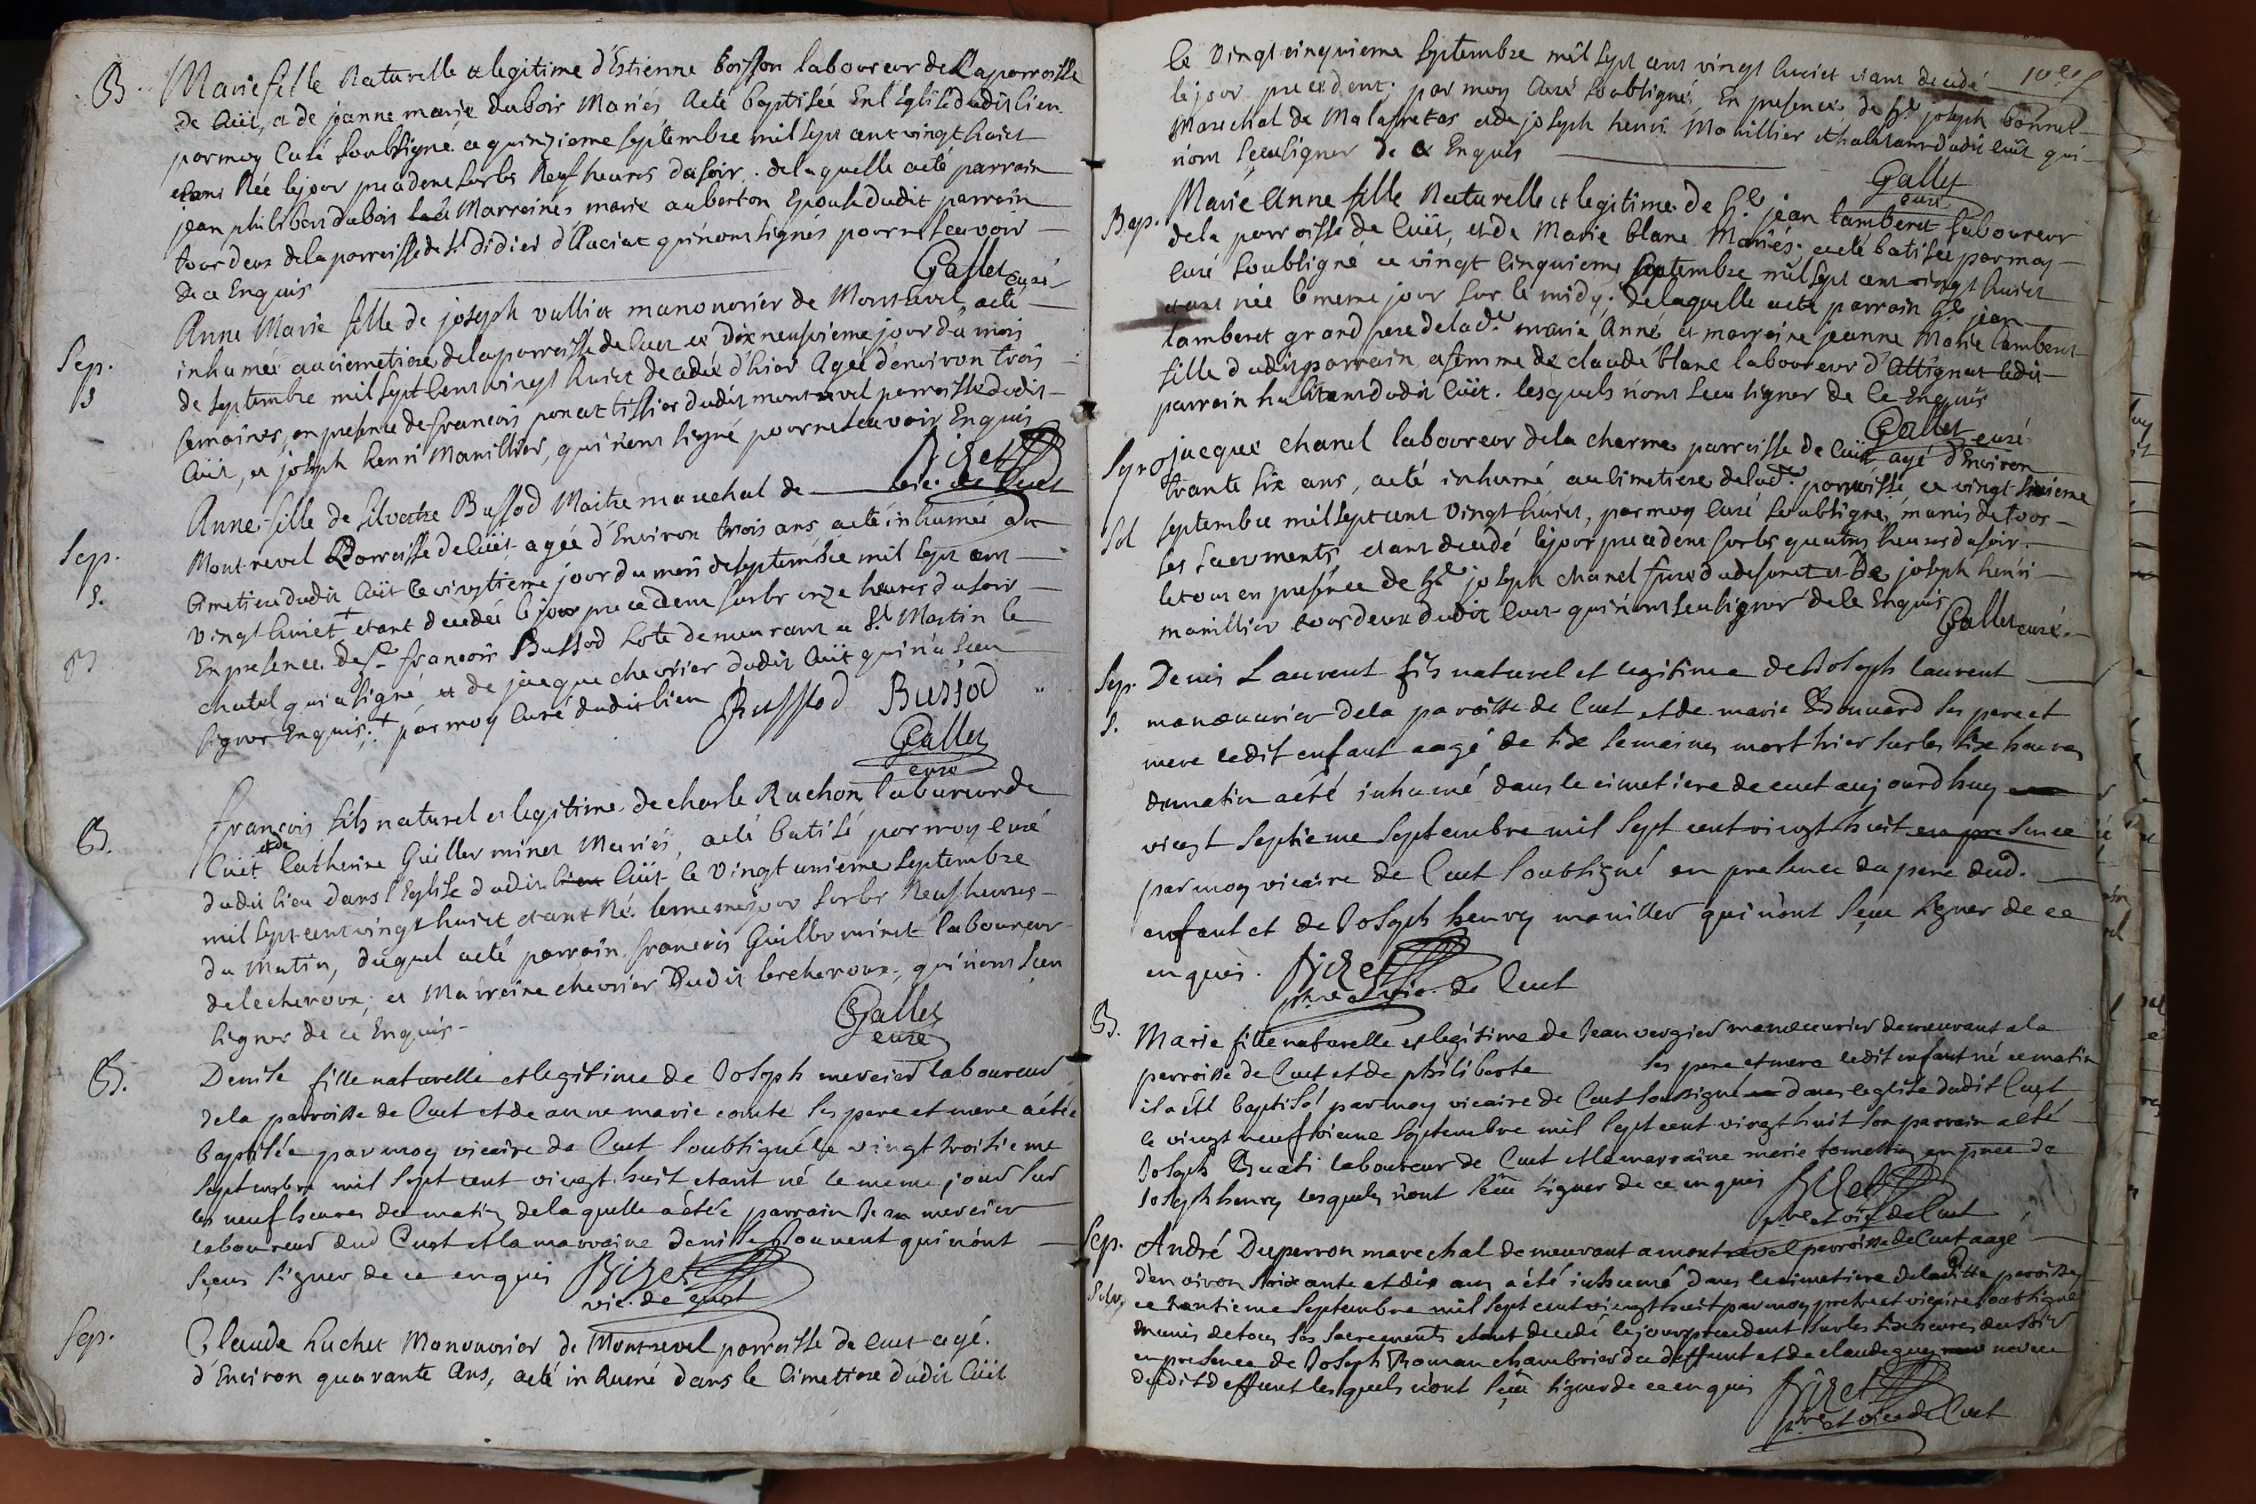 B. Marie fille Naturelle et legitime d'Estienne boisson laboureur de la parroisse
de Cüet, et de jeanne marie dubois Mariés a eté baptisée En l'Eglise dudit lieu
par moy Curé soubsigné ce quinzieme septembre mil sept cent vingt huict
etant Née le jour precedent sur les Neuf heures du soir. de laquelle a eté parrain
jean philibert dubois Marreine marie auberton Epouse dudit parrain
tous deux de la parroisse de St didier d'Auciat qui n'ont signés pour ne scavoir
de ce Enquis Gallet curé
Sep. Anne Marie fille de joseph vulliet manouvrier de Montrevel, a eté
s inhumée au cimetiere de la parroisse de Cuet ce dix neufvieme jour du mois
de septembre mil sept Cent vingt huict decedée d'hier Agée d'environ trois
semaines, en presence de francois ponat tissier dudit montrevel parroisse dudit
Cüet, et joseph henri Manillier, qui n'ont signé pour ne scavoir Enquis
Bizet vic. de Cuet
Sep. Anne fille de Silvestre Bussod Maitre marechal de
s. Montrevel Parroisse de Cüet agée d'Environ trois ans a eté inhumée au
Cimetiere dudit Cüet ce vingtieme jour du mois de septembre mil sept cent
vingt huict + etant decedée le jour precedent sur les onze heures du soir
En presence de Sr francois Bussod hote demeurant a St Martin le
chatel qui a signé, et de jacque chevrier dudit Cüet qui n'a sceu
signer Enquis. + par moy Curé dudit lieu Bussod Bussod
Gallet
curé
B. francois fils naturel et legitime de charle Ruchon laboureur de
Cüet et de Catherine Guillerminet Mariés, a eté batisé par moy curé
dudit lieu dans l'Eglise dudit lieu Cüet le Vingt unieme septembre
mil sept cent vingt huict etant Né le meme jour sur les Neuf heures
du Matin, duquel a eté parrain francois Guillerminet laboureur
de lecheroux, et Marreine chevrier dudit lecheroux, qui n'ont sceu
signer de ce Enquis
Gallet
curé
B. Denise fille naturelle et legitime de Joseph mercier laboureur
de la parroisse de Cuet et de anne marie comte ses pere et mere a été
Baptisée par moy vicaire de Cuet soubsigné le vingt troisieme
septembre mil sept cent vingt huit etant né le meme jour sur
les neuf heures du matin de laquelle a été parrain Jean mercier
laboureur dud Cuet et la marraine denise qui n'ont
sçeu signer de ce enquis Bizet
vic. de cuet
Sep. Claude huchet Manouvrier de Montrevel parroisse de cuet agé
d'Environ quarante Ans, a eté inhumé dans le Cimetiere dudit Cüet
le Vingt cinquieme septembre mil sept cent vingt huict etant decedé
le jour precedent; par moy Curé soubsigné, En presence de Sr joseph bonnet
Marechal de Malafretas et de joseph henri Manillier et habitant dudit cüet qui
n'ont sceu signer de ce Enquis
Gallet
curé
Bap. Marie Anne fille Naturelle et legitime de Sr jean lamberet laboureur
de la parroisse de Cüet, et de Marie blanc Mariés. a eté batisée par moy
Curé soubsigné ce vingt Cinquieme septembre mil sept cent vingt huict
etant née le meme jour sur le midy; de laquelle a eté parrain Sr jean
lamberet grand pere de lad. marie Anne et marreine jeanne Marie lamberet
fille dudit parrain et femme de claude blanc laboureur d'Attignat ledit
parrain habitant dudit Cüet. lesquels n'ont sceu signer de Ce Enquis
Gallet curé
jacque chanel laboureur de la charme parroisse de Cüet agé d'Environ
trante six ans, a eté inhumé au cimetiere de lad. parroisse ce vingt sixieme
septembre mil sept cent Vingt huict, par moy Curé soubsigné, munis de tous
les sacrements etant decedé le jour precedent sur les quatres heures du soir.
le tout en presence de Sr joseph chanel frere du defunct et De joseph henri
manillier tous deux dudit Cuet qui n'ont sceu signer de Ce Enquis
Gallet curé
Sep. Denis Laurent fils naturel et legitime de Joseph laurent
s. manœuvrier de la paroisse de Cuet et de marie Bouvard ses pere et
mere ledit enfant aagé de six semaines mort hier sur les six heures
du matin a été inhumé dans le cimetiere de cuet aujourd huy
vingt septieme septembre mil sept cent vingt huit en presence
par moy vicaire de Cuet soubsigné en presence du pere dud.
enfant et de Joseph henry manillier qui n'ont sçeu signer de ce
enquis. Bizet
ptre et vic. de Cuet
B. Marie fille naturelle et legitime de Jean vergier manœuvrier demeurant a la
parroisse de Cuet et de philiberte ses pere et mere ledit enfant né ce matin
il a été baptisé par moy vicaire de Cuet soussigné dans l'eglise dudit Cuet
ce vingt neufvieme septembre mil sept cent vingt huit son parrain a eté
Joseph Buati laboureur de Cuet et la marraine marie en pnce de
Joseph henry lesquels n'ont sceu signer de ce enquis Bizet
ptre et vic de Cuet
Sep. André Duperron marechal demeurant a montrevel parroisse de Cuet aagé
d'environ soixante et dix ans a été inhumé dans le cimetiere de laditte paroisse
ce trentieme septembre mil sept cent vingt huit par moy pretre et vicaire soubsigné
munis de tous ses sacrements etant decedé le jour precedent sur les six heures du soir
en presence de Joseph Roman chambrier du deffunt et de claude guy neveu
dudit deffunt lesquels n'ont sceu signer de ce enquis Bizet
ptre et vic de Cuet